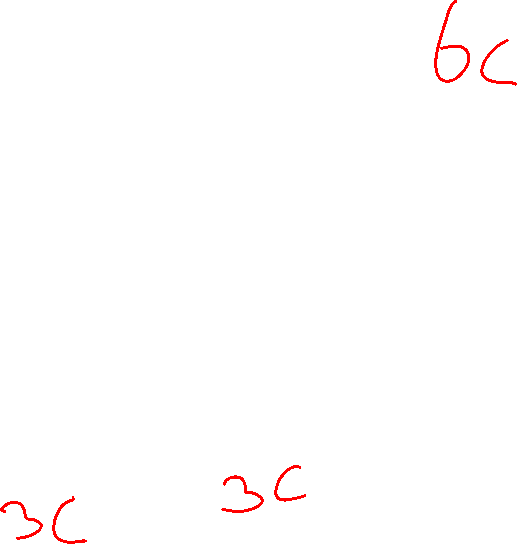 6c
3c
3c